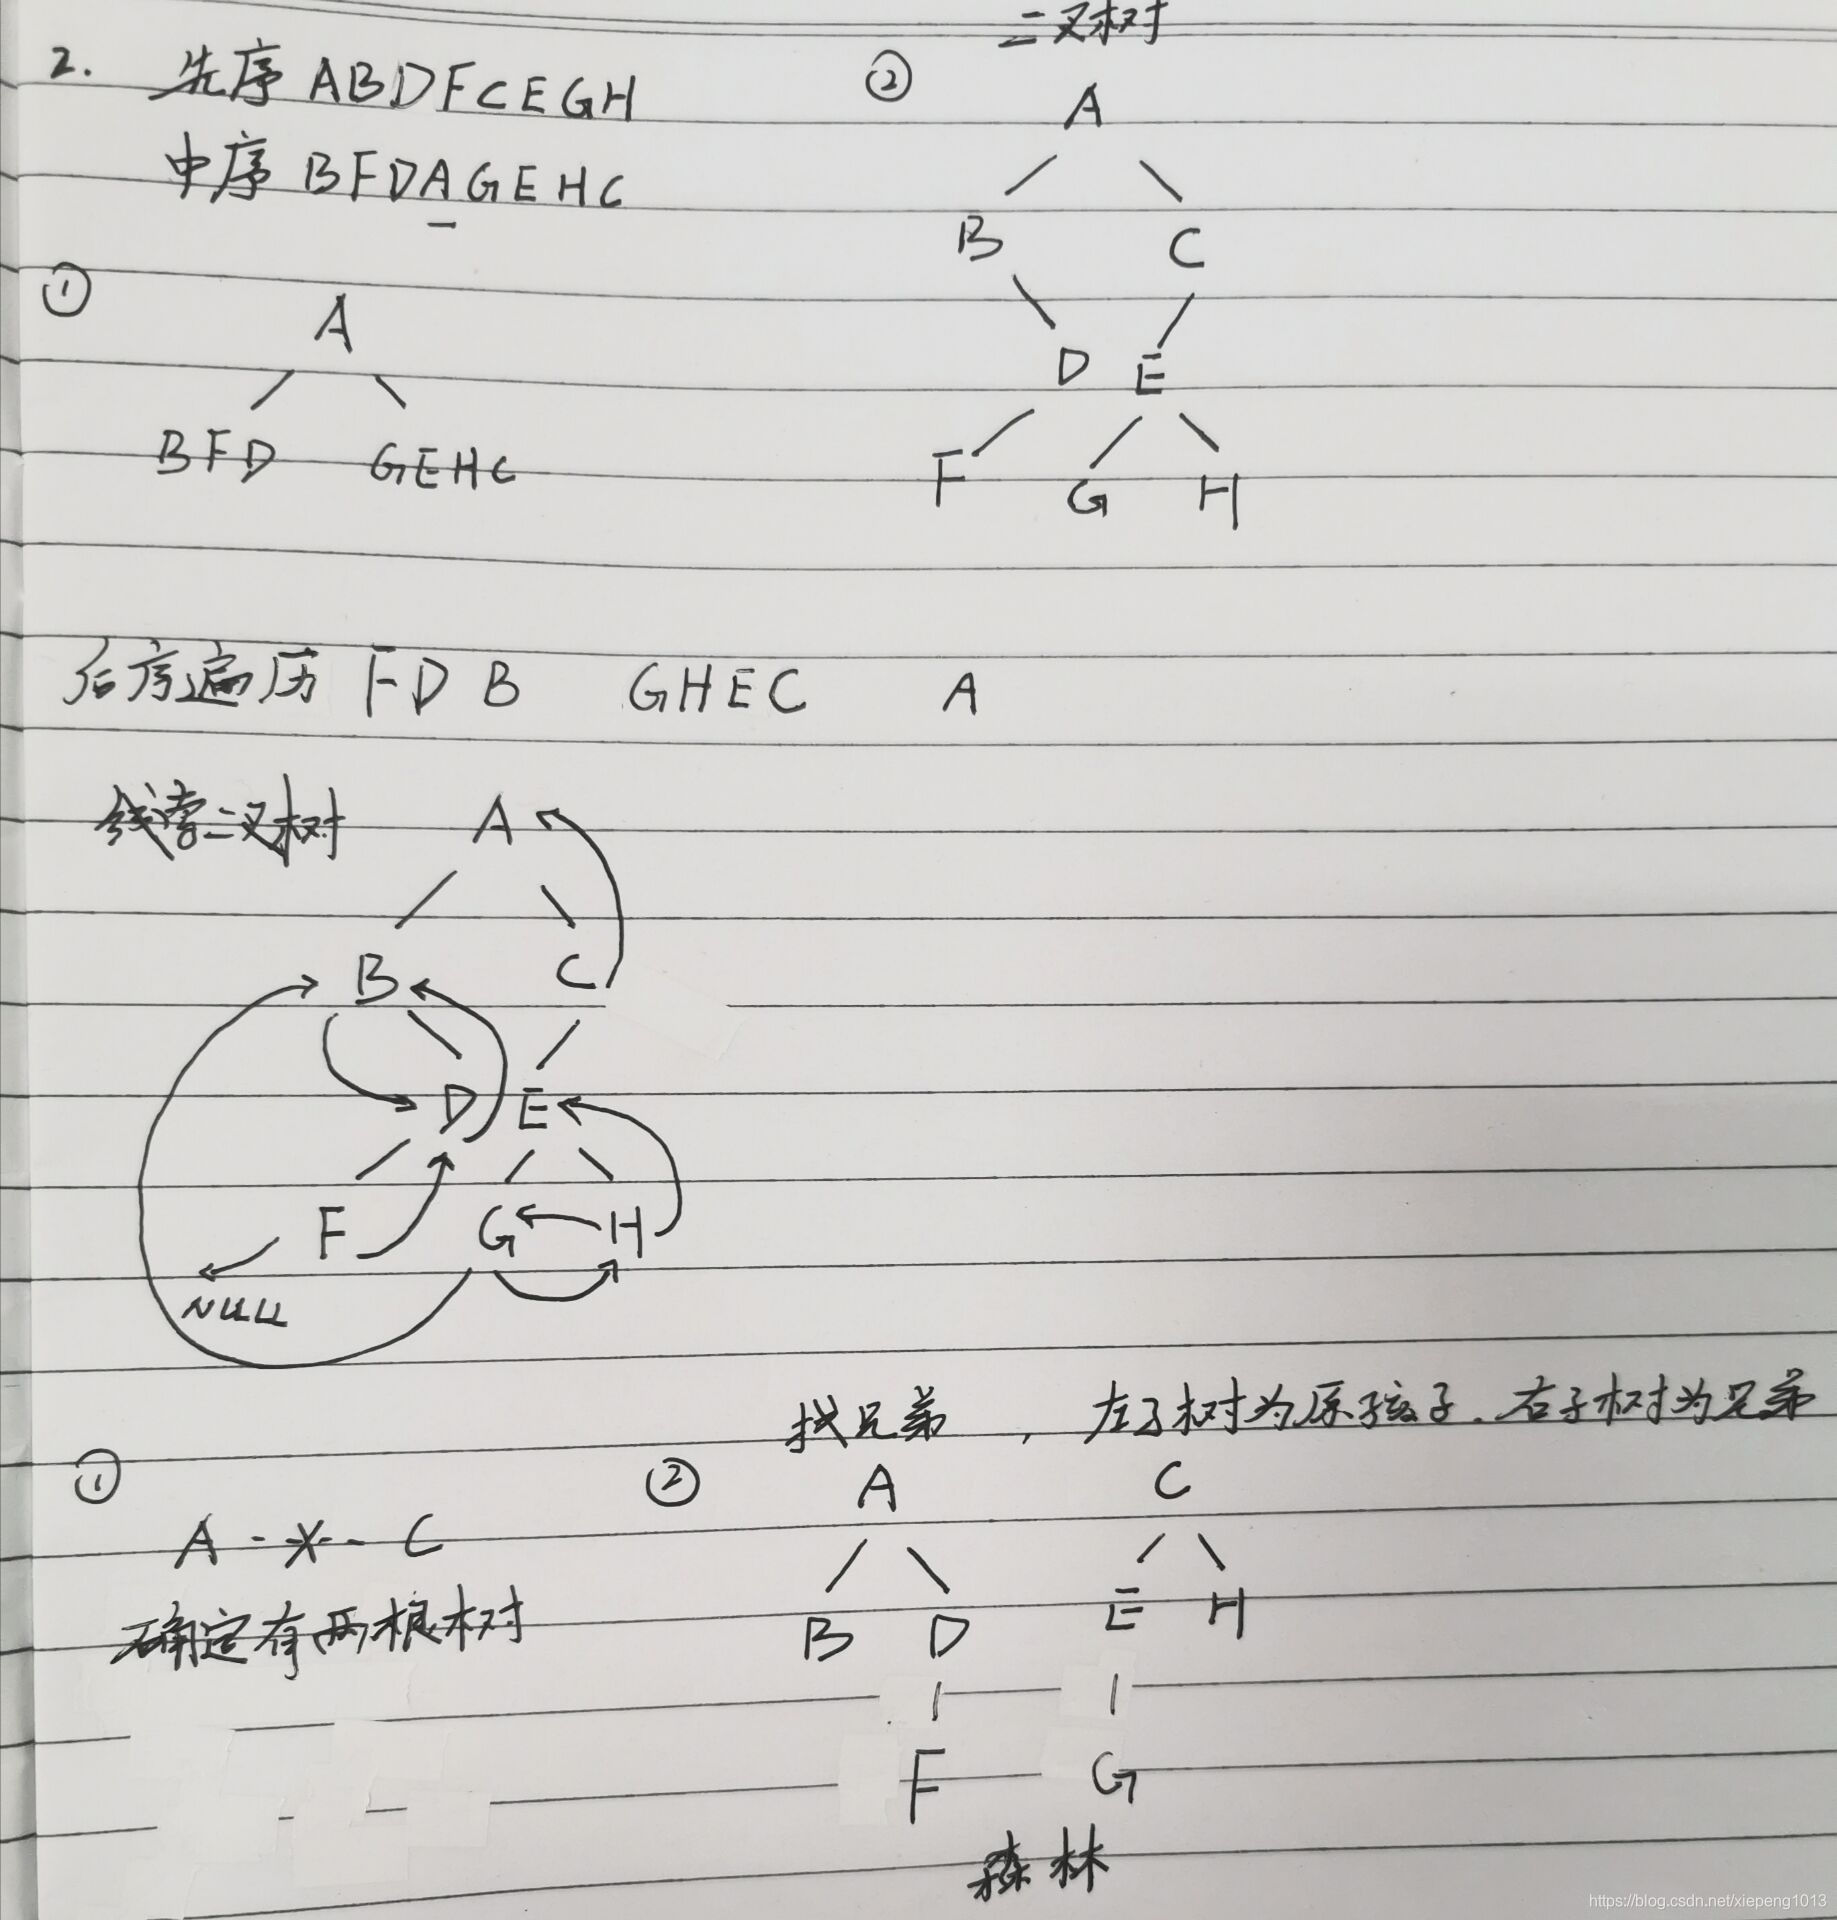 二叉树
2. 先序 ABDFCEGH
②
A
中序 BFDAGEHC
B C
①
A
D E
BFD GEHC
F G H
后序遍历 FDB GHEC A
线索二叉树
A
B C
D E
F G H
NULL
找兄弟 , 左子树为原孩子. 右子树为兄弟
① ②
A C
A - X - C
E H
确定有两根树
B D
F G
森林
https://blog.csdn.net/xiepeng1013